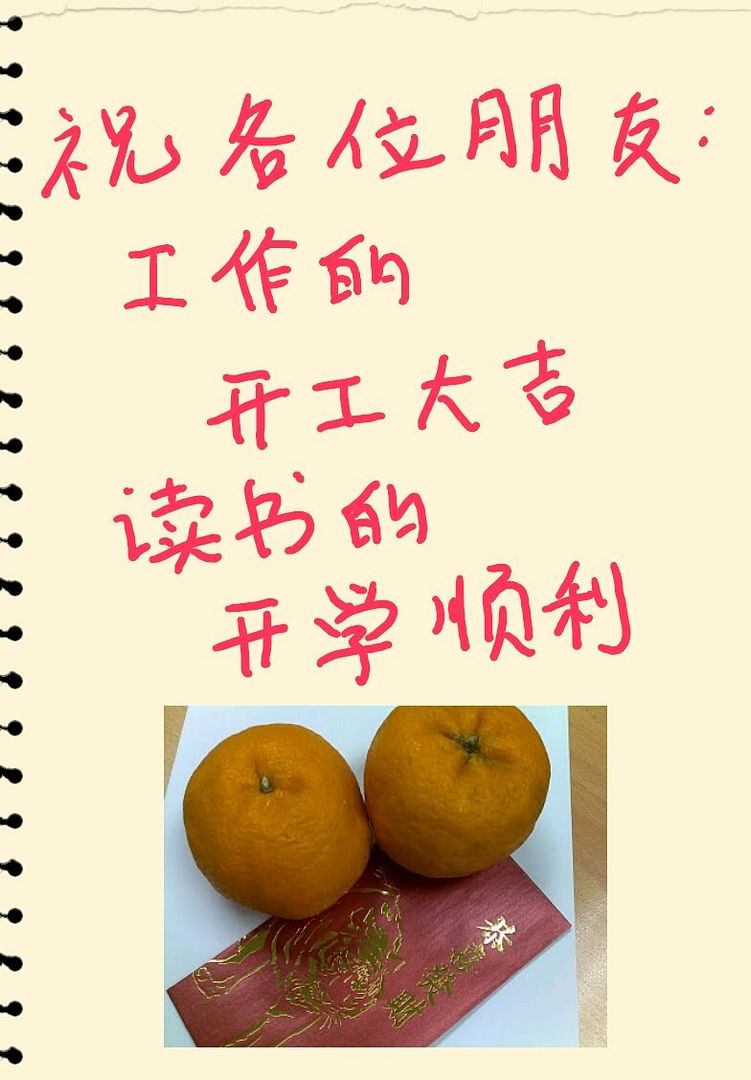 祝各位朋友:
工作的
开工大吉
读书的
开学顺利
恭喜發財